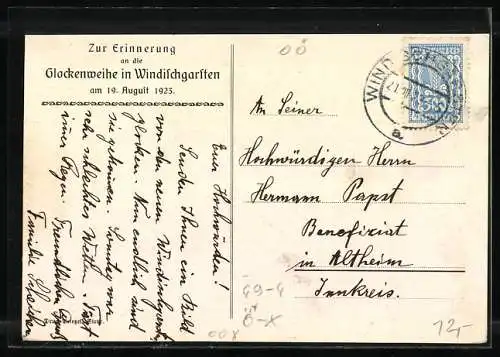 Zur Erinnerung
an die
Glockenweihe in Windischgarsten
am 19. August 1923.
Euer Hochwürden!
Senden Ihnen ein Bild
von den neuen Windischgarst.
glocken. Nun endlich sind
sie gekommen. Sonntag war
sehr schlechtes Wetter. Fast
immer Regen. Freundliche Grüße
Familie
WINDISCHGARSTEN
a
An Seiner
Hochwürdigen Herrn
Hermann Papst
Benefiziat
in Altheim
Innkreis.
G9-4
Ö-X
00X
12,-